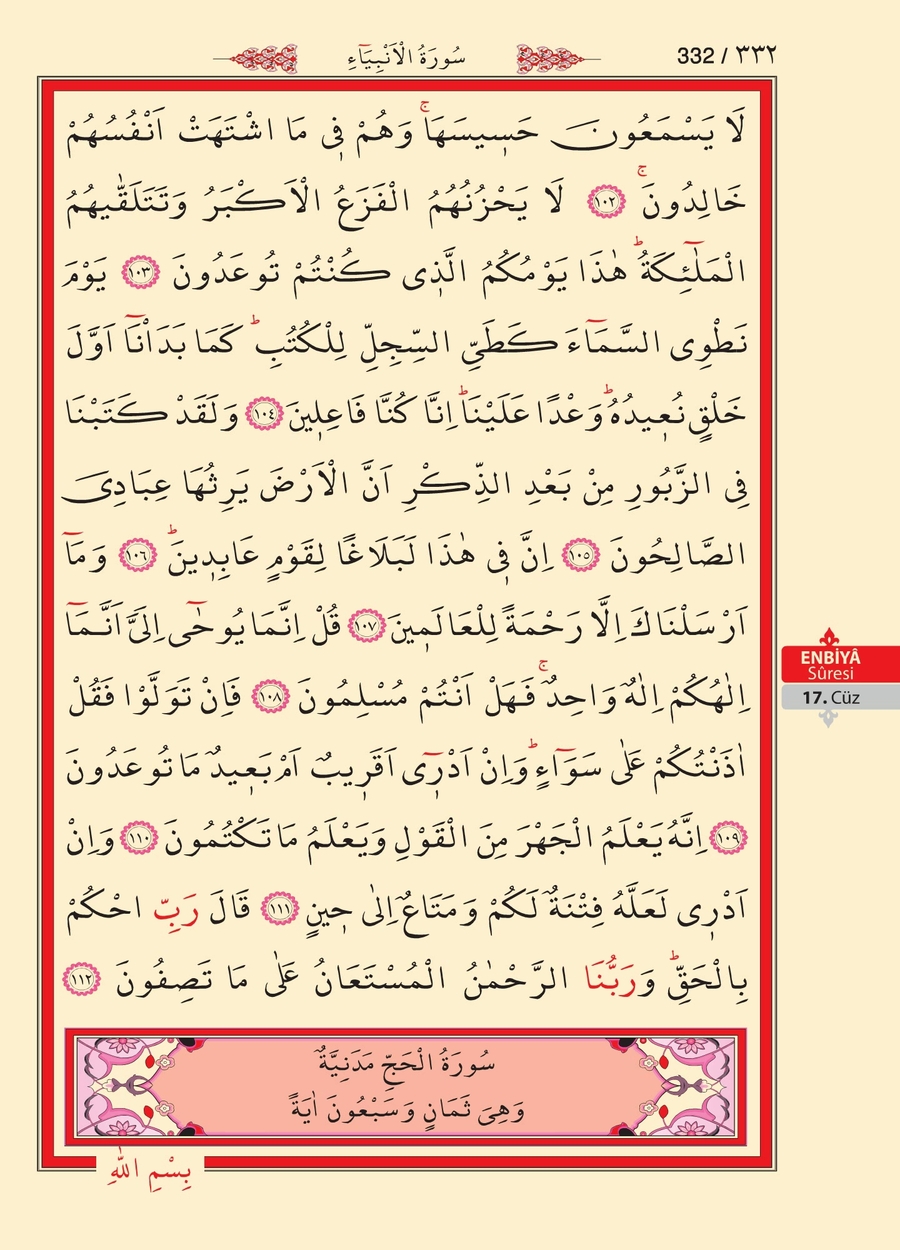 سُورَةُ الْاَنْبِيَٓاءِ
332 / ٣٣٢
لَا يَسْمَعُونَ حَسٖيسَهَاۚ وَهُمْ فٖى مَا اشْتَهَتْ اَنْفُسُهُمْ
خَالِدُونَۚ ﴿١٠٢﴾ لَا يَحْزُنُهُمُ الْفَزَعُ الْاَكْبَرُ وَتَتَلَقّٰيهُمُ
الْمَلٰٓئِكَةُۜ هٰذَا يَوْمُكُمُ الَّذٖى كُنْتُمْ تُوعَدُونَ ﴿١٠٣﴾ يَوْمَ
نَطْوِى السَّمَٓاءَ كَطَىِّ السِّجِلِّ لِلْكُتُبِۜ كَمَا بَدَاْنَٓا اَوَّلَ
خَلْقٍ نُعٖيدُهُۜ وَعْدًا عَلَيْنَاۜ اِنَّا كُنَّا فَاعِلٖينَ ﴿١٠٤﴾ وَلَقَدْ كَتَبْنَا
فِى الزَّبُورِ مِنْ بَعْدِ الذِّكْرِ اَنَّ الْاَرْضَ يَرِثُهَا عِبَادِىَ
الصَّالِحُونَ ﴿١٠٥﴾ اِنَّ فٖى هٰذَا لَبَلَاغًا لِقَوْمٍ عَابِدٖينَۜ ﴿١٠٦﴾ وَمَٓا
اَرْسَلْنَاكَ اِلَّا رَحْمَةً لِلْعَالَمٖينَ ﴿١٠٧﴾ قُلْ اِنَّمَا يُوحٰٓى اِلَىَّ اَنَّمَٓا
اِلٰهُكُمْ اِلٰهٌ وَاحِدٌۚ فَهَلْ اَنْتُمْ مُسْلِمُونَ ﴿١٠٨﴾ فَاِنْ تَوَلَّوْا فَقُلْ
اٰذَنْتُكُمْ عَلٰى سَوَٓاءٍۜ وَاِنْ اَدْرٖٓى اَقَرٖيبٌ اَمْ بَعٖيدٌ مَا تُوعَدُونَ
﴿١٠٩﴾ اِنَّهُ يَعْلَمُ الْجَهْرَ مِنَ الْقَوْلِ وَيَعْلَمُ مَا تَكْتُمُونَ ﴿١١٠﴾ وَاِنْ
اَدْرٖى لَعَلَّهُ فِتْنَةٌ لَكُمْ وَمَتَاعٌ اِلٰى حٖينٍ ﴿١١١﴾ قَالَ رَبِّ احْكُمْ
بِالْحَقِّۜ وَرَبُّنَا الرَّحْمٰنُ الْمُسْتَعَانُ عَلٰى مَا تَصِفُونَ ﴿١١٢﴾
سُورَةُ الْحَجِّ مَدَنِيَّةٌ
وَهِىَ ثَمَانٍ وَسَبْعُونَ اٰيَةً
بِسْمِ اللّٰهِ
ENBİYÂ
Sûresi
17. Cüz